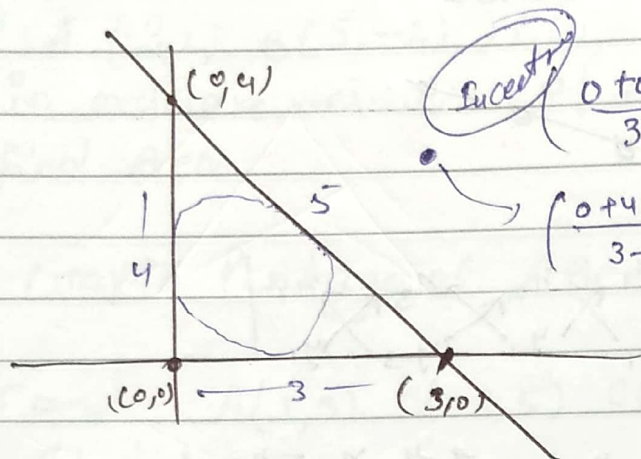 (0,4)
Incentre ( 0+0
3
5
1
4
( 0+4
3-
(0,0) 3 (3,0)